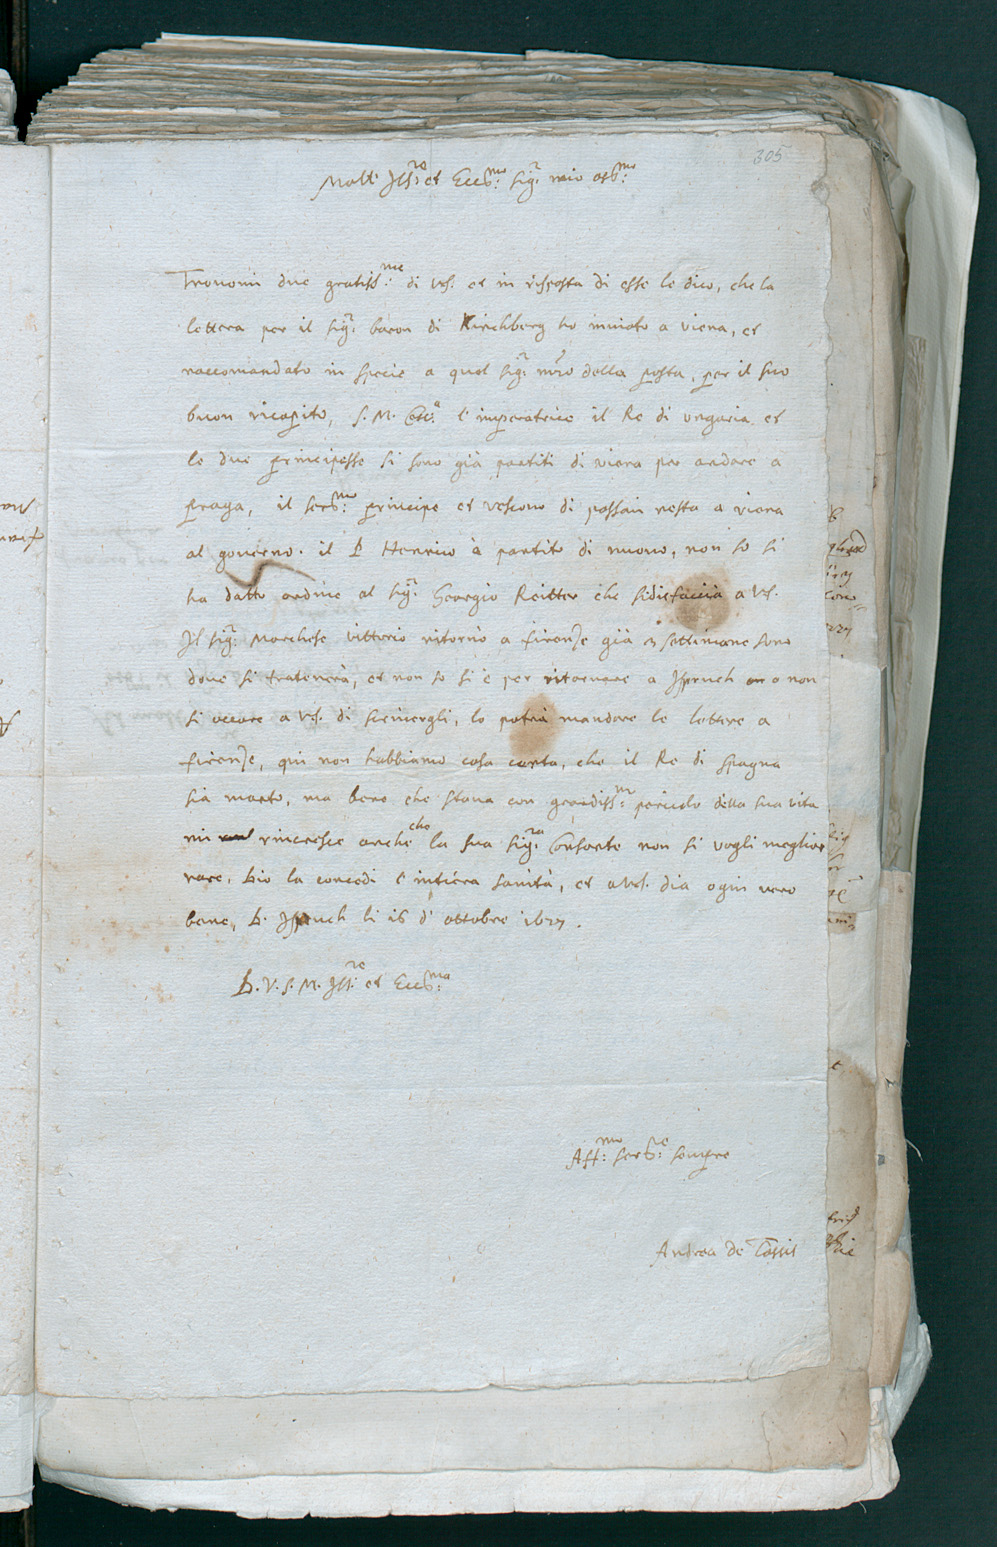 305
Molt' Ill:re et Ecc:mo Sig:r mio oss:mo
Trovomi due gratiss:me di VS. et in risposta di esse le dico, che la
lettera per il Sig:r baron di Kirchberg ho inviato a viena, et
raccomandato in specie a quel Sig:r mro della posta, per il suo
buon ricapito, S. M. Ces:a l'imperatrice il Re di ungaria et
le due principesse si sono già partiti di viena per andare a
praga, il ser:mo principe et vescovo di passau resta a viena
al governo. il P Henrico à partito di nuovo, non so si
ha datto ordine al Sig:r Georgio Reitter che sidisfaccia a VS.
Il Sig:r Marchese vittorio ritornò a firenze già 3 settimane sono
dove si tratenerà, et non so si è per ritornare a Ispruch o non
si occore a VS. di scrivergli, lo potrà mandare le lettere a
firenze, qui non habbiamo cosa certa, che il Re di Spagna
sia morto, ma bene che stava con grandiss:mo pericolo della sua vita
mi rincresce anche che la sua Sig:ra Consorte non si vogli meglio=
rare, Dio la concedi l'intiera sanità, et a VS. dia ogni vero
bene, D. Ispruch li 16 d' ottobre 1627.
D. V. S. M. Ill:re et Ecc:ma
Aff:mo ser:re sempre
Andrea de Tassis